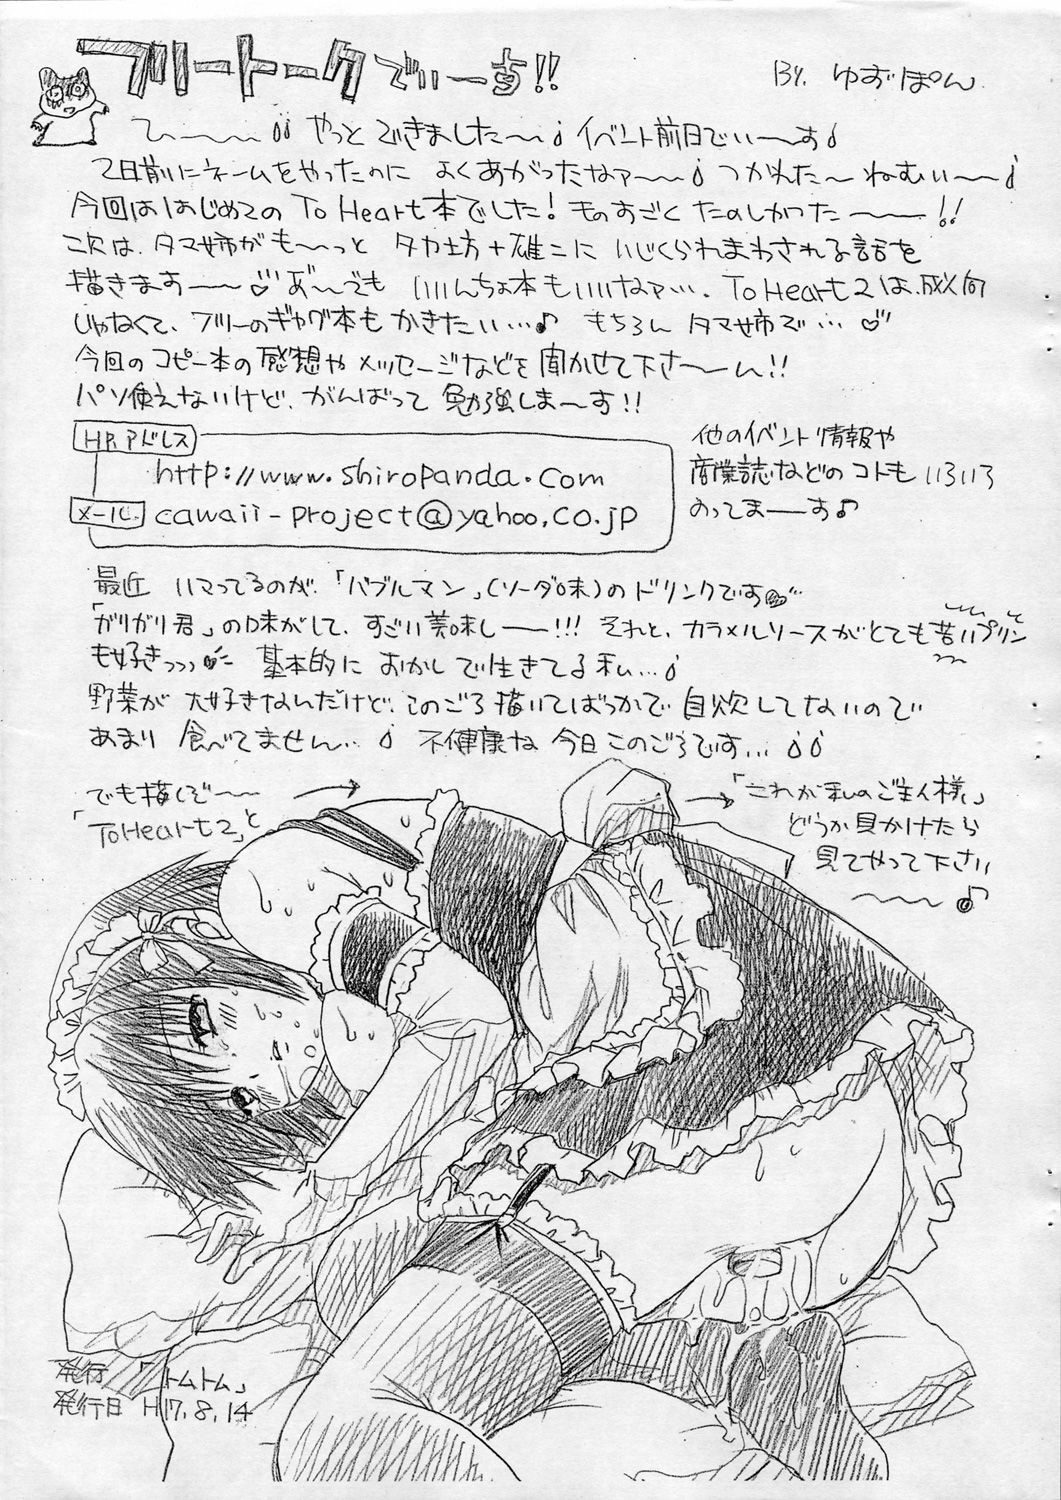 フリートークでぃーす!!
BY. ゆずぽん
ひ〜〜〜 やっとできました〜♪ イベント前日でぃーす♪
2日前にネームをやったのに よくあがったなァ〜〜♪ つかれた〜 ねむぃ〜〜♪
今回ははじめての To Heart本でした! ものすごく たのしかった〜〜〜!!
二次は、タマ姉がも〜〜っと タカ坊+雄二に いじくられまわされる話を
描きます〜〜♡ あ゛〜〜でも いいんちょ本もいいなァ…。To Heart2は、成人向
じゃなくて、フリーのギャグ本も かきたい…♪ もちろん タマ姉で…♡
今回のコピー本の感想や メッセージなどを聞かせて下さ〜〜ん!!
パソ使えないけど、がんばって 勉強しま〜す!!
HP.アドレス
http://www.shiropanda.com
メール.
cawaii-project@yahoo.co.jp
他のイベント情報や
商業誌などのコトも いろいろ
のってま〜〜す♪
最近 ハマってるのが、「バブルマン」(ソーダ味)のドリンクです
「ガリガリ君」の味がして、すごい美味し〜〜!!! それと、カラメルソースがとても苦いプリン
も好きっっっ 基本的に おかしで生きてる私…♪
野菜が 大好きなんだけど、このごろ 描いてばっかで 自炊してないので
あまり 食べてません… 不健康な 今日このごろです…
でも描くぞ〜〜
「ToHeart2」と
→
→
「これが私のご主人様」
どうか見かけたら
見てやって下さい
〜〜〜♪
発行 「トムトム」
発行日 H17.8.14